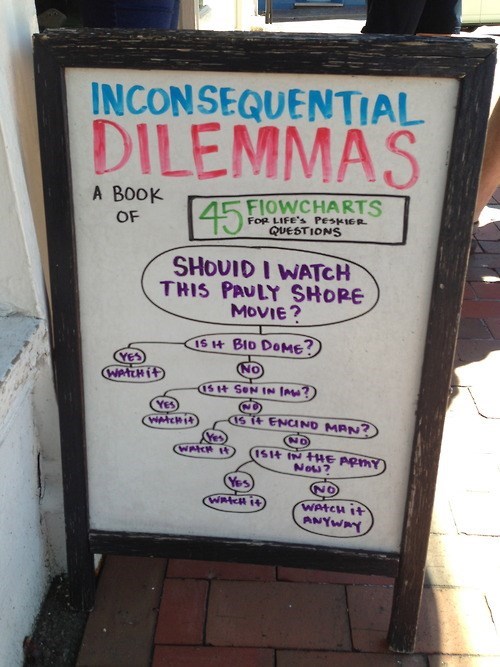 INCONSEQUENTIAL
DILEMMAS
A BOOK
OF
45 FlOWCHARTS
FOR LIFE'S PESKIER
QUESTIONS
SHOUlD I WATCH
THIS PAULY SHORE
MOVIE?
IS It BIO DOME?
YES
WAtCH it
NO
IS It SON IN lAW?
YES
WAtCH it
NO
IS It ENCINO MAN?
Yes
WAtCH it
NO
IS It IN tHE ARMY
NOW?
YES
WAtCH it
NO
WAtCH it
ANYWAY